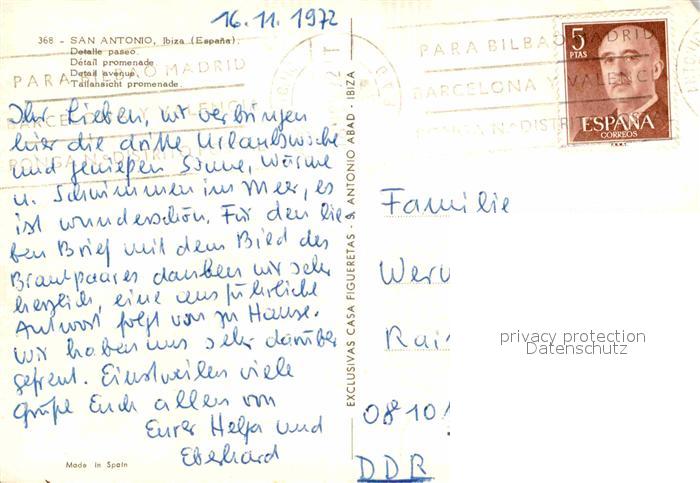 16.11.1972
368 - SAN ANTONIO, Ibiza (España).
Detalle paseo
Détail promenade
Detail avenue
Tailansicht promenade
PARA BILBAO MADRID
BARCELONA Y VALENCIA
PONGA Nº DISTRITO
Ihr Lieben, wir verbringen
hier die dritte Urlaubswoche
und genießen Sonne, Wärme
u. Schwimmen im Meer, es
ist wunderschön. Für den lie
ben Brief mit dem Bild des
Brautpaares danken wir sehr
herzlich, eine ausführliche
Antwort folgt von zu Hause.
Wir haben uns sehr darüber
gefreut. Einstweilen viele
Grüße Euch allen von
Eurer Helga und
Eberhard
Made in Spain
EXCLUSIVAS CASA FIGUERETAS - S. ANTONIO ABAD - IBIZA
PARA BILBAO MADRID
BARCELONA Y VALENCIA
PONGA Nº DISTRITO
5
PTAS
ESPAÑA
CORREOS
F.N.M.T.
Familie
Wern
Rai
0810
DDR
privacy protection
Datenschutz